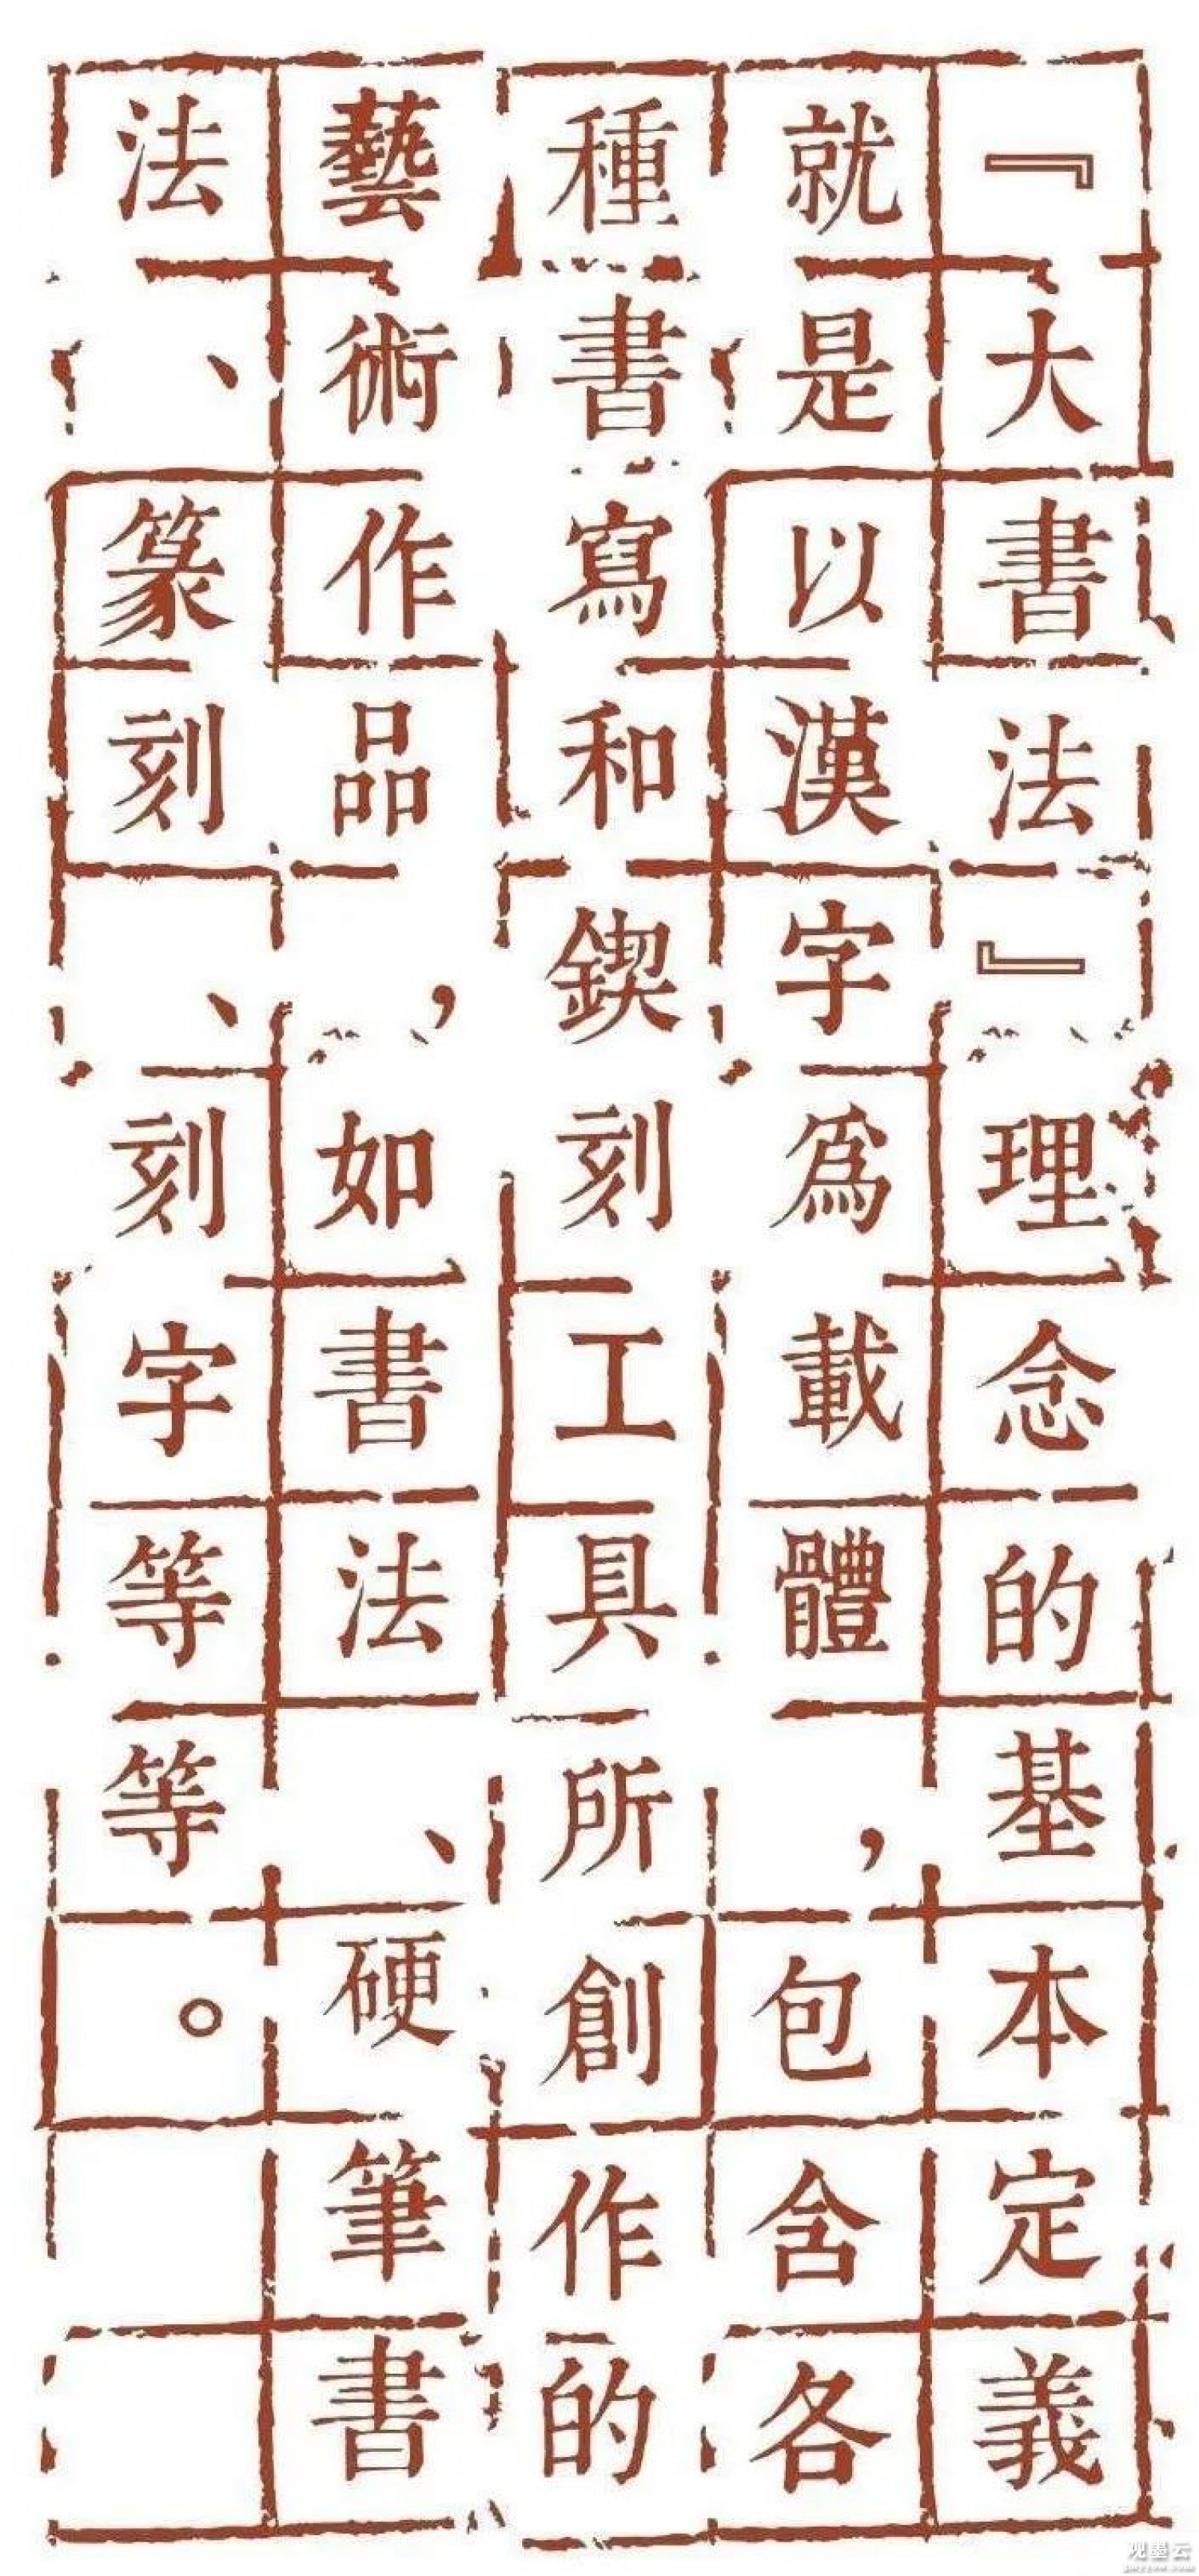 『大書法』理念的基本定義
就是以漢字爲載體，包含各
種書寫和鍥刻工具所創作的
藝術作品，如書法、硬筆書
法、篆刻、刻字等等。
观墨云